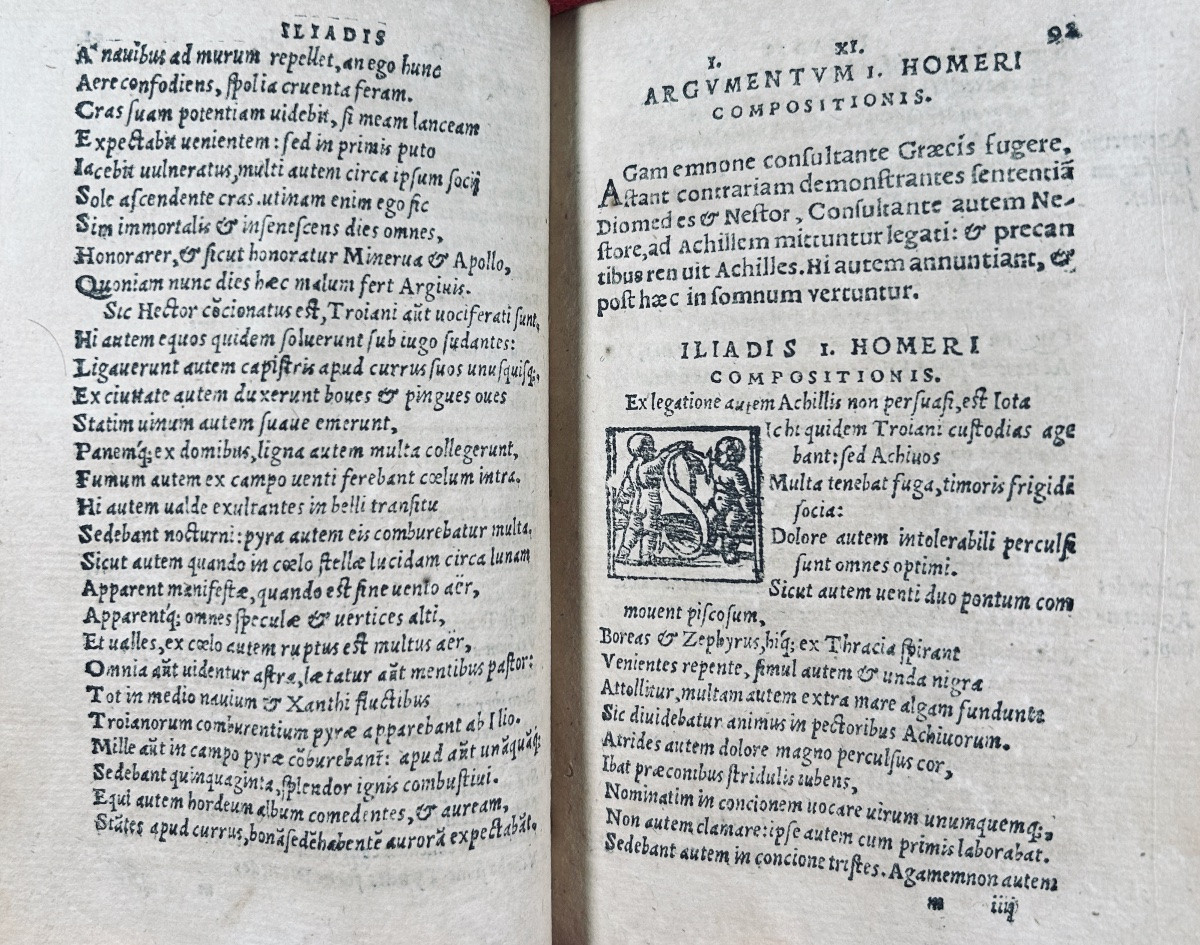 ILIADIS
A' nauibus ad murum repellet, an ego hunc
Aere confodiens, ſpolia cruenta feram.
Cras ſuam potentiam uidebit, ſi meam lanceam
Expectabit uenientem: ſed in primis puto
Iacebit uulneratus, multi autem circa ipſum ſocij
Sole aſcendente cras. utinam enim ego ſic
Sim immortalis & inſeneſcens dies omnes,
Honorarer, & ſicut honoratur Minerua & Apollo,
Quoniam nunc dies hæc malum fert Argiuis.
Sic Hector cōcionatus eſt, Troiani aūt uociferati ſunt,
Hi autem equos quidem ſoluerunt ſub iugo ſudantes:
Ligauerunt autem capiſtris apud currus ſuos unuſquiſq;,
Ex ciuitate autem duxerunt boues & pingues oues
Statim uinum autem ſuaue emerunt,
Panemq́; ex domibus, ligna autem multa collegerunt,
Fumum autem ex campo uenti ferebant cœlum intra.
Hi autem ualde exultantes in belli tranſitu
Sedebant nocturni: pyra autem eis comburebatur multa.
Sicut autem quando in cœlo ſtellæ lucidam circa lunam
Apparent manifeſtæ, quando eſt ſine uento aër,
Apparentq́; omnes ſpeculæ & uertices alti,
Et ualles, ex cœlo autem ruptus eſt multus aër,
Omnia aūt uidentur aſtra, lætatur aūt mentibus paſtor:
Tot in medio nauium & Xanthi fluctibus
Troianorum comburentium pyræ apparebant ab Ilio.
Mille aūt in campo pyræ cōburebant̄: apud aūt unāquāq;
Sedebant quinquaginta, ſplendor ignis combuſtiui.
Equi autem hordeum album comedentes, & auream,
Stātes apud currus, bonā ſedē habentē aurorā expectabāt.
I. XI. 92
ARGVMENTVM I. HOMERI
COMPOSITIONIS.
AGamemnone conſultante Græcis fugere,
Aſtant contrariam demonſtrantes ſententiā
Diomedes & Neſtor, Conſultante autem Ne-
ſtore, ad Achillem mittuntur legati: & precan
tibus renuit Achilles. Hi autem annuntiant, &
poſt hæc in ſomnum vertuntur.
ILIADIS I. HOMERI
COMPOSITIONIS.
Ex legatione autem Achillis non perſuaſi, eſt Iota
SIch quidem Troiani cuſtodias age
bant: ſed Achiuos
Multa tenebat fuga, timoris frigidi
ſocia:
Dolore autem intolerabili perculſi
ſunt omnes optimi.
Sicut autem uenti duo pontum com
mouent piſcoſum,
Boreas & Zephyrus, hiq́; ex Thracia ſpirant
Venientes repente, ſimul autem & unda nigra
Attollitur, multam autem extra mare algam fundunt
Sic diuidebatur animus in pectoribus Achiuorum.
Atrides autem dolore magno perculſus cor,
Ibat præconibus ſtridulis iubens,
Nominatim in concionem uocare uirum unumquemq;,
Non autem clamare: ipſe autem cum primis laborabat.
Sedebant autem in concione triſtes. Agamemnon autem
m iiij